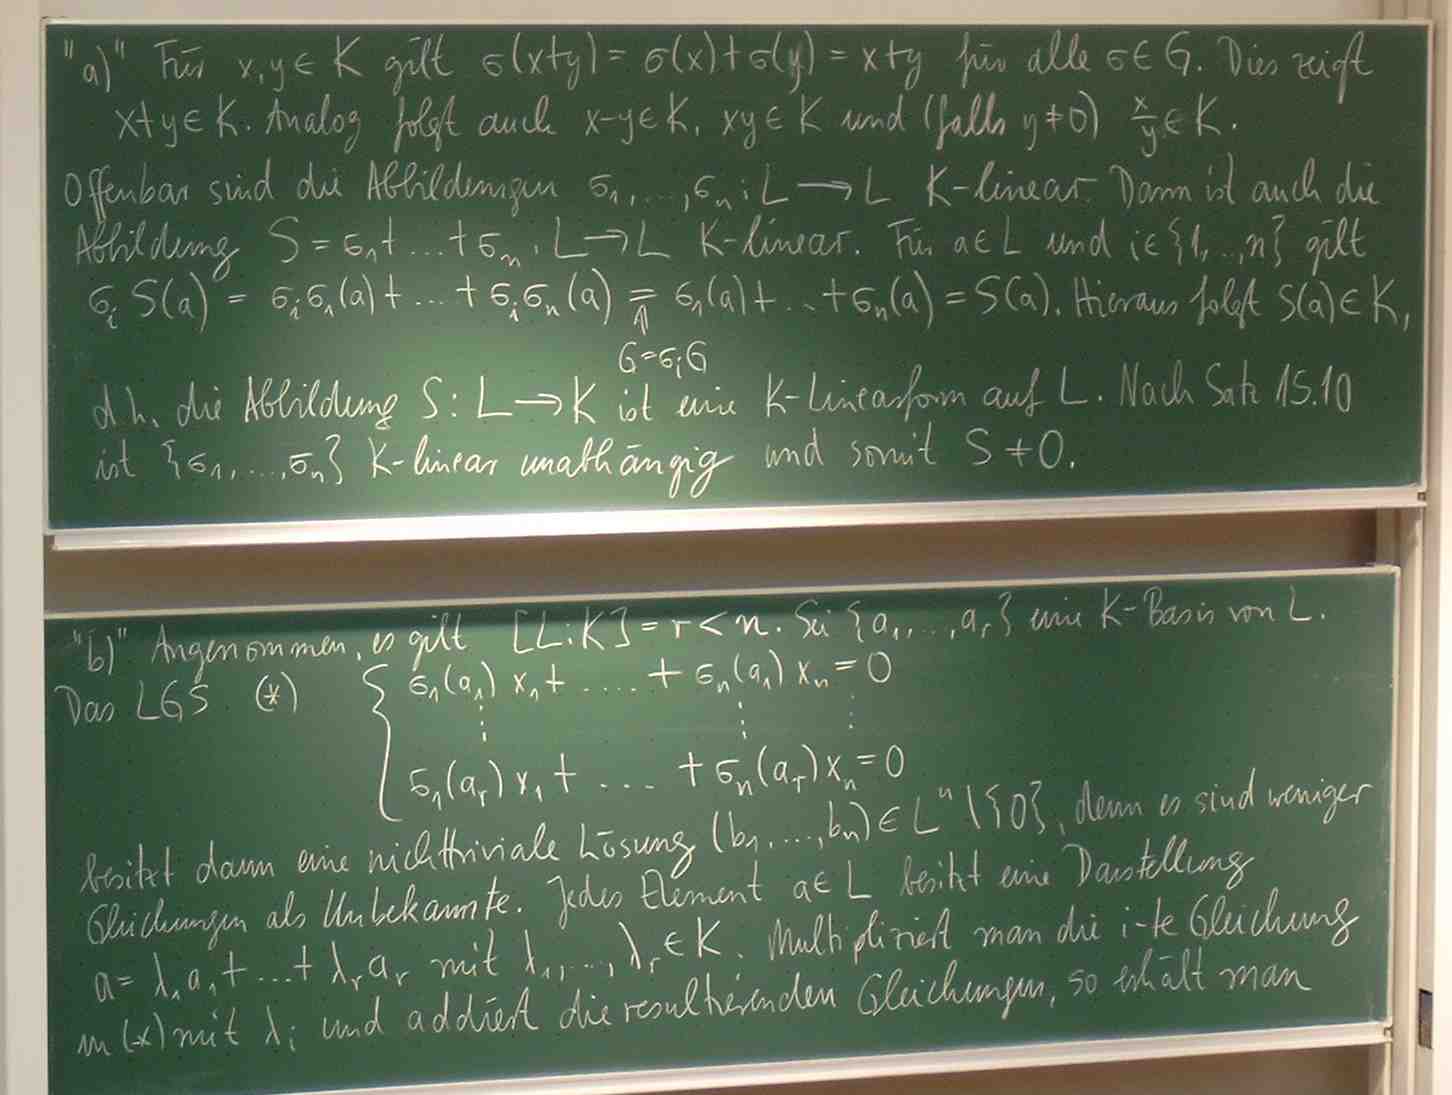 "a)" Für x,y ∈ K gilt σ(x+y) = σ(x)+σ(y) = x+y für alle σ ∈ G. Dies zeigt
x+y ∈ K. Analog folgt auch x-y ∈ K, xy ∈ K und (falls y ≠ 0) x/y ∈ K.
Offenbar sind die Abbildungen σ₁,...,σₙ : L → L K-linear. Dann ist auch die
Abbildung S = σ₁+...+σₙ : L → L K-linear. Für a ∈ L und i ∈ {1,...,n} gilt
σᵢ S(a) = σᵢσ₁(a)+...+σᵢσₙ(a) = σ₁(a)+...+σₙ(a) = S(a). Hieraus folgt S(a) ∈ K,
⇑
G=σᵢG
d.h. die Abbildung S: L → K ist eine K-Linearform auf L. Nach Satz 15.10
ist {σ₁,...,σₙ} K-linear unabhängig und somit S ≠ 0.
"b)" Angenommen, es gilt [L:K] = r < n. Sei {a₁,...,aᵣ} eine K-Basis von L.
Das LGS (*) { σ₁(a₁) x₁ + .... + σₙ(a₁) xₙ = 0
⋮ ⋮ ⋮
σ₁(aᵣ) x₁ + .... + σₙ(aᵣ) xₙ = 0
besitzt dann eine nichttriviale Lösung (b₁,...,bₙ) ∈ Lⁿ\{0}, denn es sind weniger
Gleichungen als Unbekannte. Jedes Element a ∈ L besitzt eine Darstellung
a = λ₁a₁+...+λᵣaᵣ mit λ₁,...,λᵣ ∈ K. Multipliziert man die i-te Gleichung
in (*) mit λᵢ und addiert die resultierenden Gleichungen, so erhält man